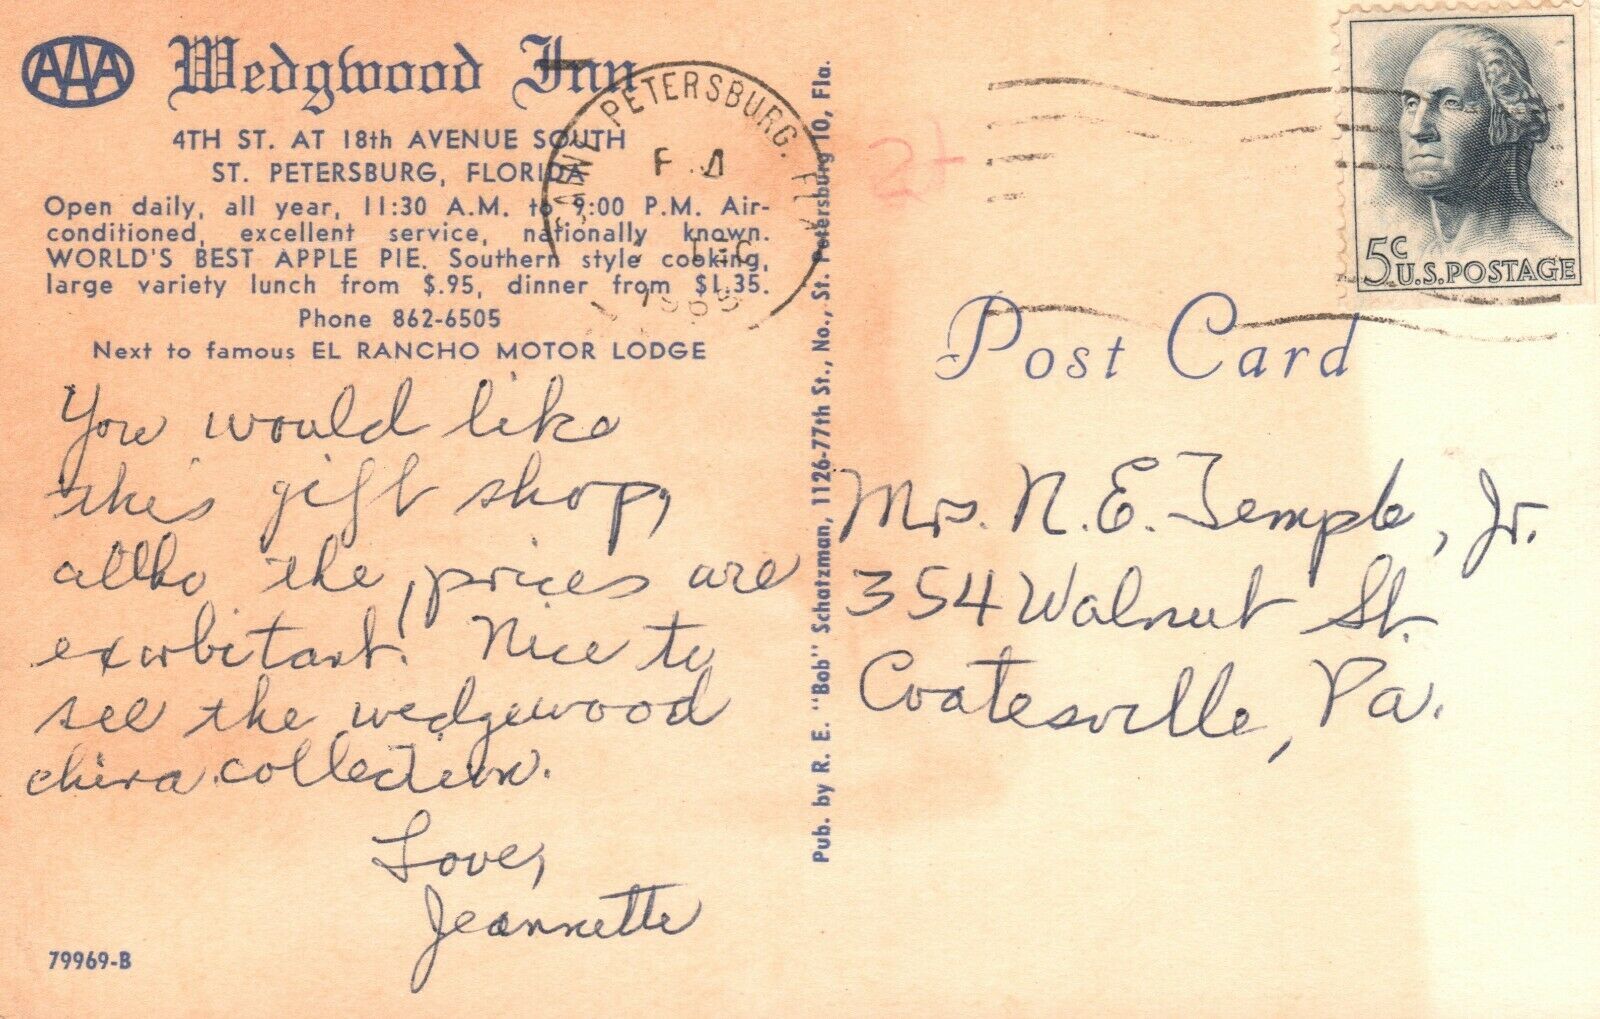 AAA
Wedgwood Inn
4TH ST. AT 18th AVENUE SOUTH
ST. PETERSBURG, FLORIDA
Open daily, all year, 11:30 A.M. to 9:00 P.M. Air-
conditioned, excellent service, nationally known.
WORLD'S BEST APPLE PIE. Southern style cooking,
large variety lunch from $.95, dinner from $1.35.
Phone 862-6505
Next to famous EL RANCHO MOTOR LODGE
You would like
this gift shop,
altho the prices are
exorbitant! Nice to
see the wedgewood
china collection.
Love,
Jeannette
79969-B
PETERSBURG, FLA
Pub. by R. E. "Bob" Schatzman, 1126-77th St., No., St. Petersburg 10, Fla.
5¢
U.S. POSTAGE
Post Card
Mrs. N. E. Temple, Jr.
354 Walnut St.
Coatesville, Pa.